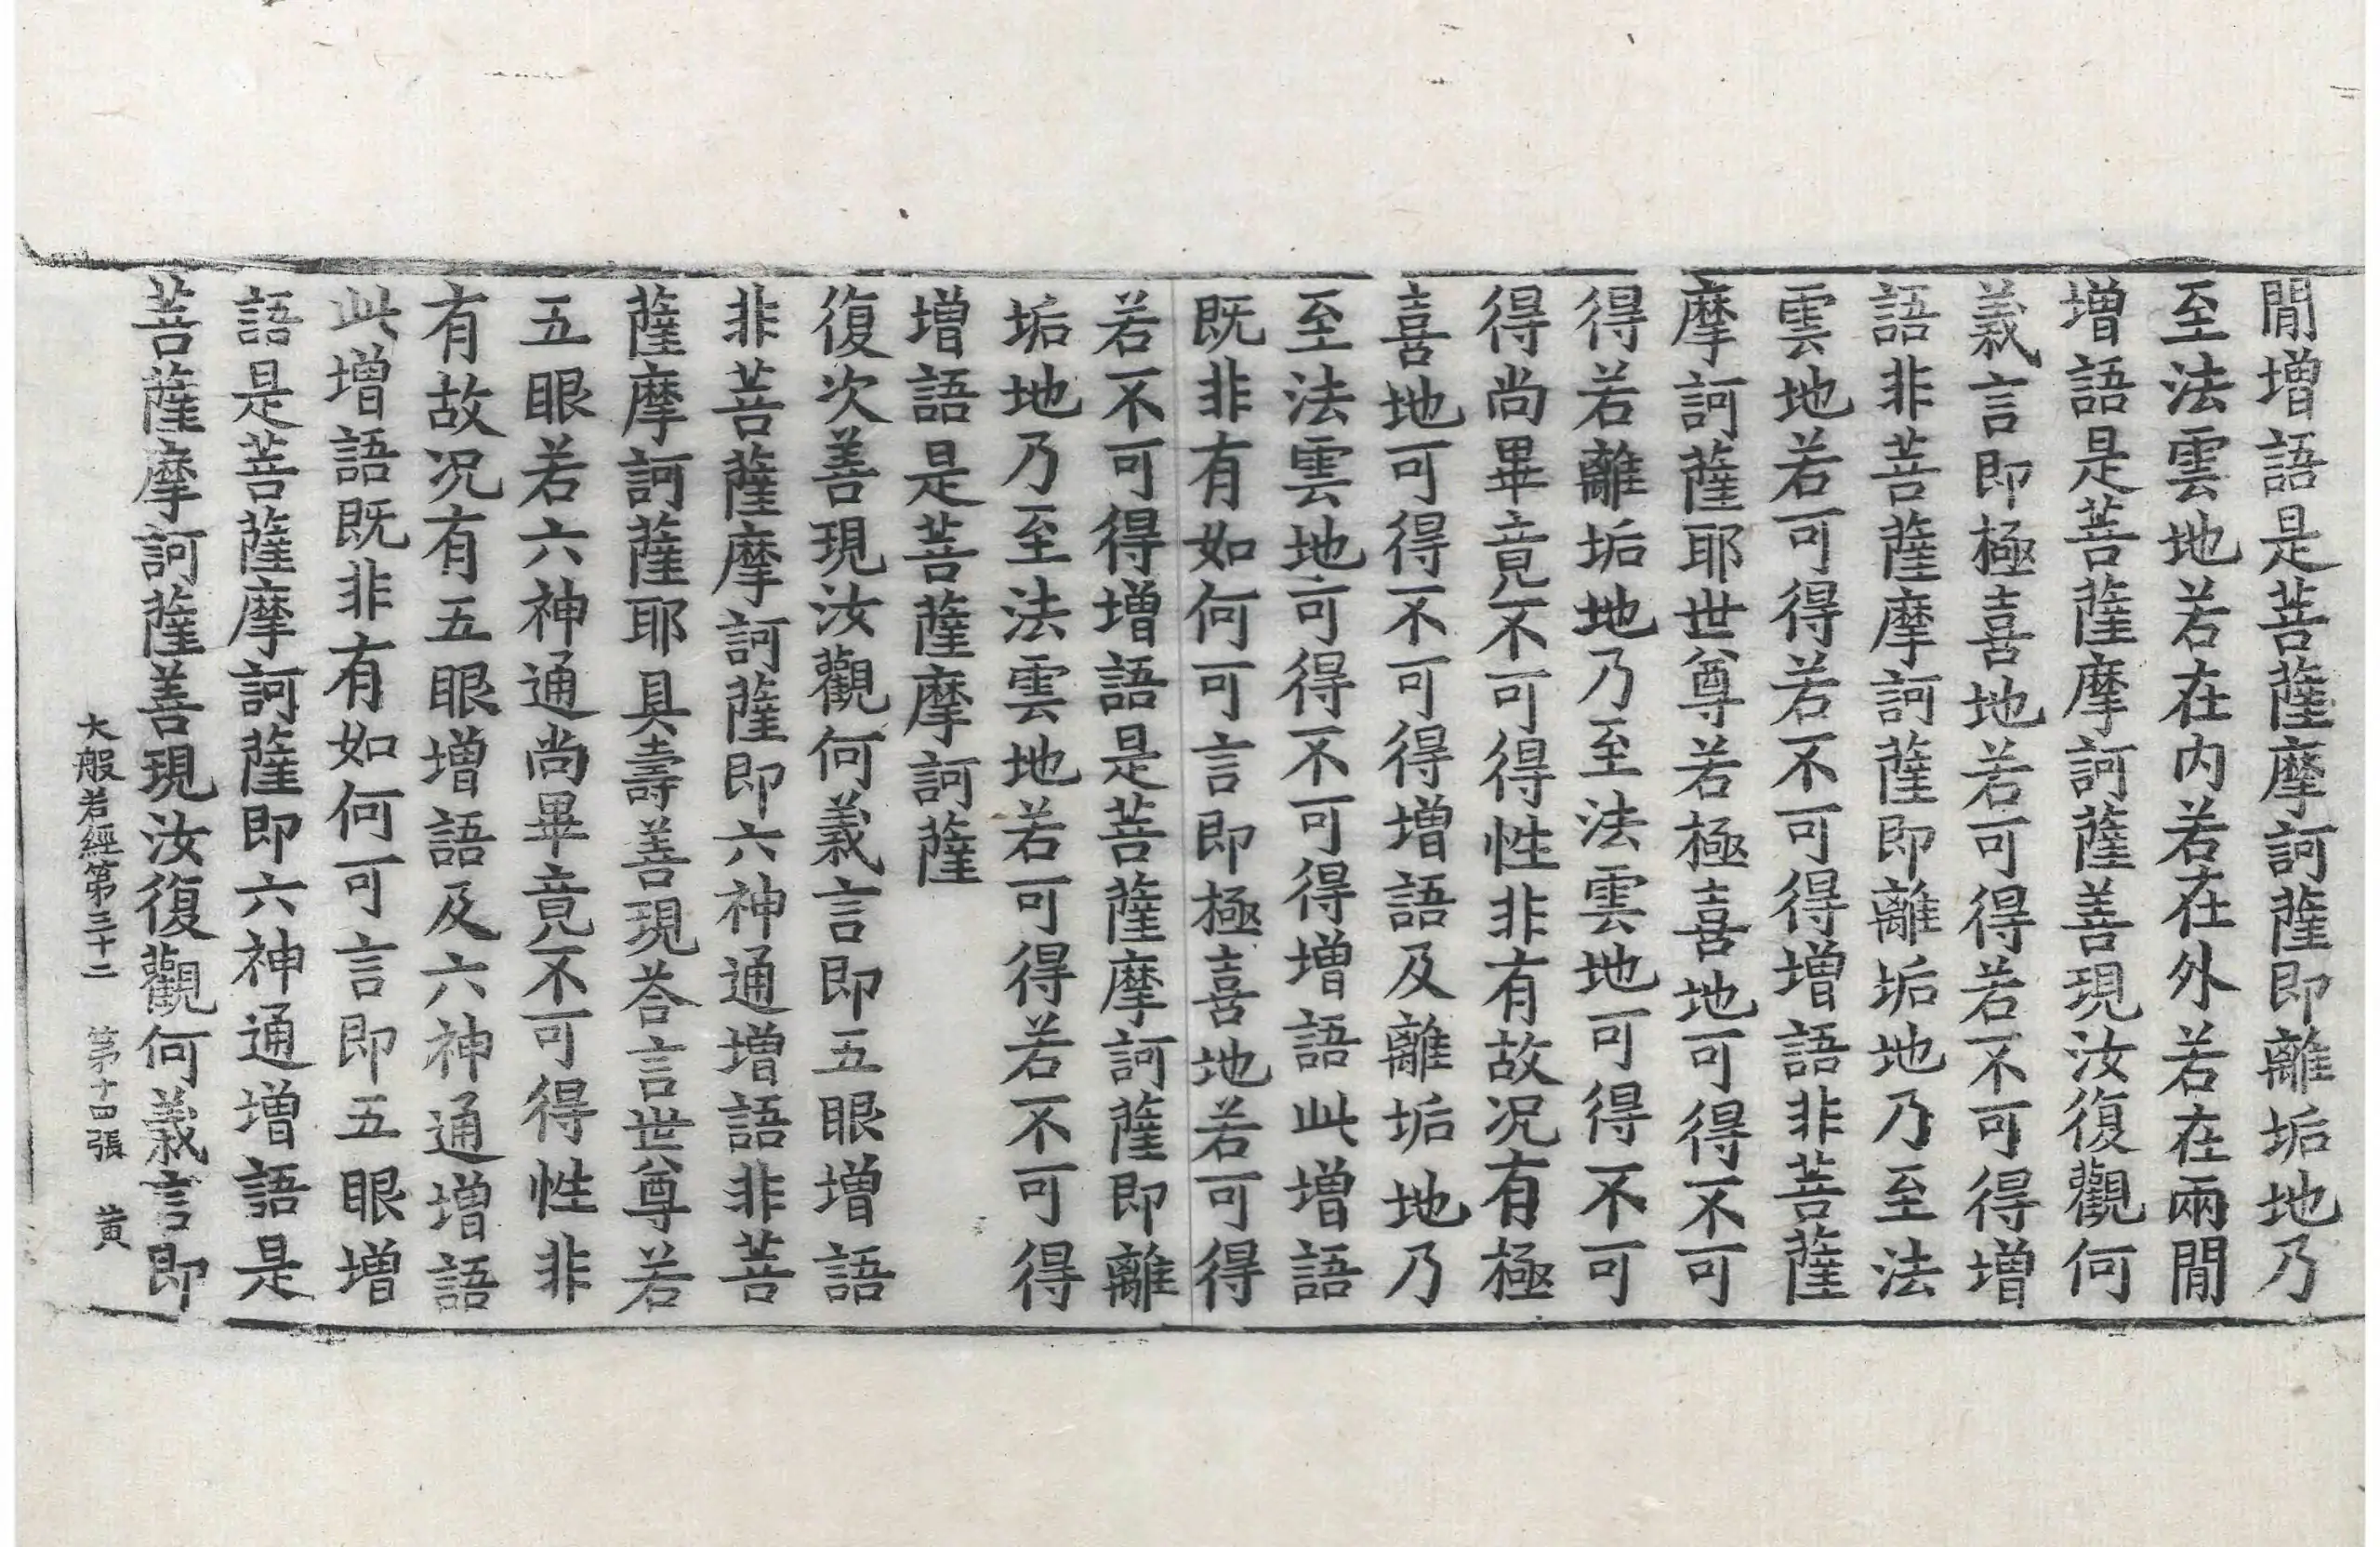 閒增語是菩薩摩訶薩即離垢地乃
至法雲地若在内若在外若在兩閒
增語是菩薩摩訶薩善現汝復觀何
義言即極喜地若可得若不可得增
語非菩薩摩訶薩即離垢地乃至法
雲地若可得若不可得增語非菩薩
摩訶薩耶世尊若極喜地可得不可
得若離垢地乃至法雲地可得不可
得尚畢竟不可得性非有故况有極
喜地可得不可得增語及離垢地乃
至法雲地可得不可得增語此增語
既非有如何可言即極喜地若可得
若不可得增語是菩薩摩訶薩即離
垢地乃至法雲地若可得若不可得
增語是菩薩摩訶薩
復次善現汝觀何義言即五眼增語
非菩薩摩訶薩即六神通增語非菩
薩摩訶薩耶具壽善現荅言世尊若
五眼若六神通尚畢竟不可得性非
有故况有五眼增語及六神通增語
此增語既非有如何可言即五眼增
語是菩薩摩訶薩即六神通增語是
菩薩摩訶薩善現汝復觀何義言即
大般若經第三十二 第十四張 黄